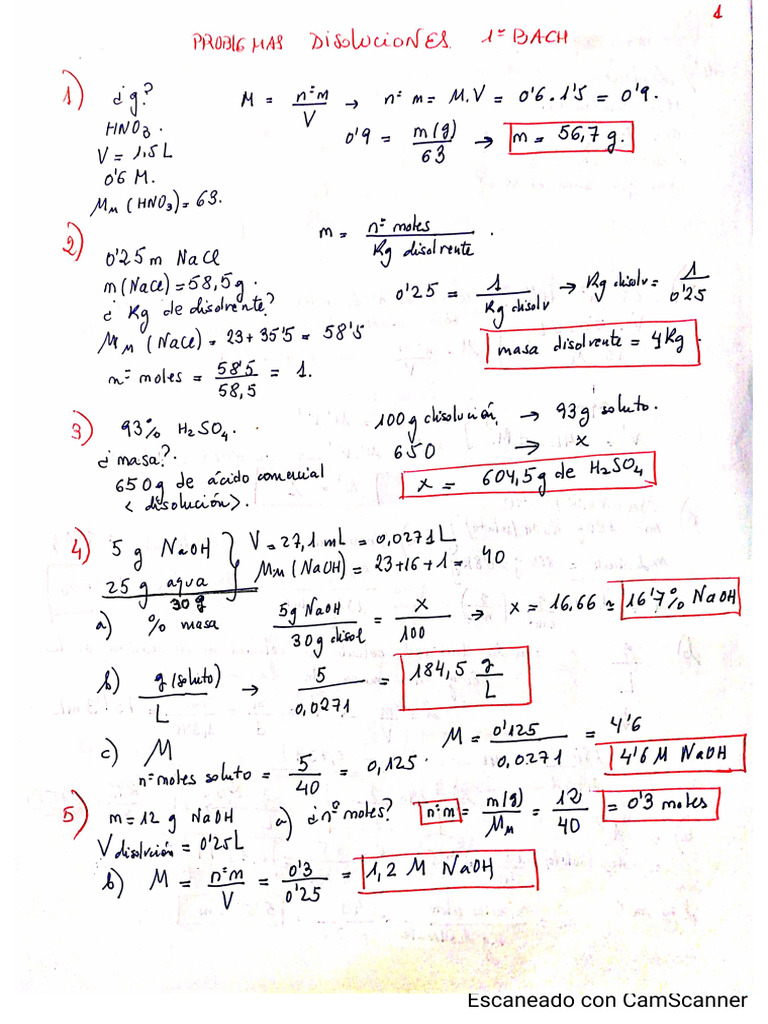 1
PROBLEMAS DISOLUCIONES 1º BACH
1) ¿g?
HNO3.
V = 1,5 L
0'6 M.
MM (HNO3) = 63.
M = nºm / V → nº m = M.V = 0'6 . 1'5 = 0'9.
0'9 = m(g) / 63 → m = 56,7 g.
2)
0'25 m NaCl
m (NaCl) = 58,5 g.
¿ Kg de disolvente?
MM (NaCl) = 23 + 35'5 = 58'5
nº moles = 58'5 / 58,5 = 1.
m = nº moles / Kg disolvente .
0'25 = 1 / Kg disolv → Kg disolv = 1 / 0'25
masa disolvente = 4 Kg.
3) 93% H2SO4.
¿masa?.
650 g de ácido comercial
< disolución>.
100 g disolución → 93 g soluto.
650 → x
x = 604,5 g de H2SO4
4) 5 g NaOH
25 g agua
30 g
V = 27,1 mL = 0,0271 L
MM (NaOH) = 23+16+1 = 40
a) % masa
5g NaOH / 30g disol = x / 100 → x = 16,66 ≃ 16'7% NaOH
b) g (soluto) / L → 5 / 0,0271 = 184,5 g / L
c) M
nº moles soluto = 5 / 40 = 0,125.
M = 0'125 / 0,0271 = 4'6
4'6 M NaOH
5) m = 12 g NaOH
V disolución = 0'25 L
a) ¿nº moles? nºm = m(g) / MM = 12 / 40 = 0'3 moles
b) M = nºm / V = 0'3 / 0'25 = 1,2 M NaOH
Escaneado con CamScanner